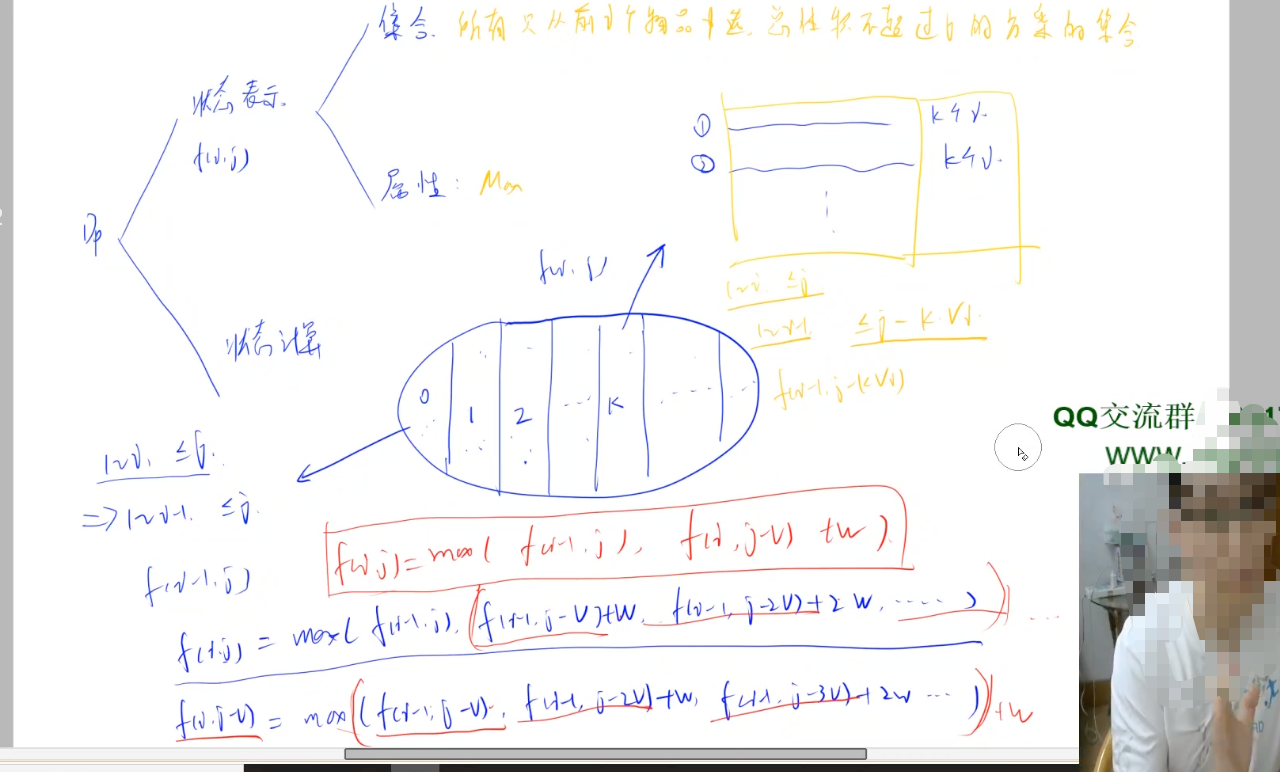 集合. 所有只从前i个物品中选, 总体积不超过j的方案的集合
状态表示.
f(i,j)
属性: Max
DP
状态计算
① k个i.
② k个i.
f(i,j)
1~i. ≤j
1~i-1. ≤j-k·Vi.
f(i-1,j-kVi)
0 1 2 ... k ......
1~i, ≤j.
=> 1~i-1. ≤j.
f(i-1,j)
f(i,j)=max( f(i-1,j), f(i,j-V)+W ).
f(i,j) = max( f(i-1,j), f(i-1,j-V)+W, f(i-1,j-2V)+2W, ...... ) ...
f(i,j-V) = max( f(i-1,j-V), f(i-1,j-2V)+W, f(i-1,j-3V)+2W ... ) +W
QQ交流群
WWW.